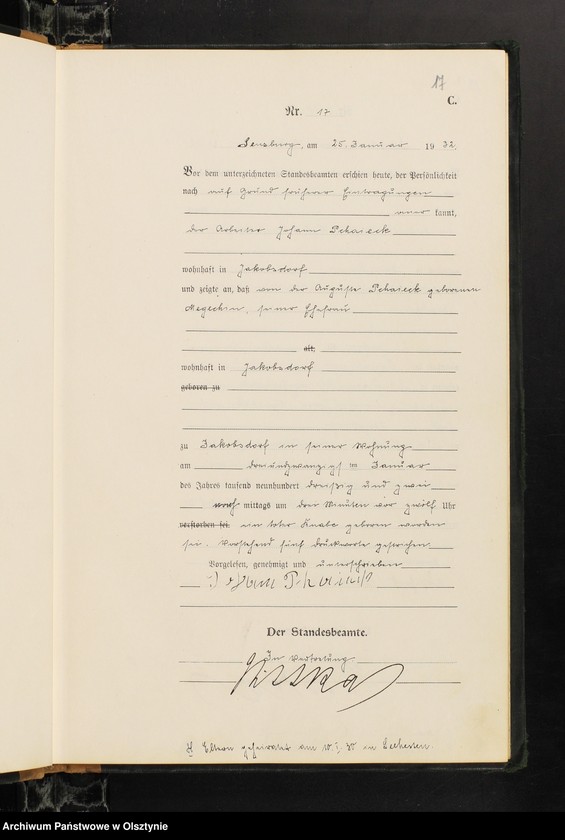 17
C.
Nr. 17
Sensburg, am 25. Januar 1932.
Vor dem unterzeichneten Standesbeamten erschien heute, der Persönlichkeit
nach auf Grund früherer Eintragungen
anerkannt,
der Arbeiter Johann
wohnhaft in Jakobsdorf
und zeigte an, daß von der Auguste geborenen
seiner Ehefrau
alt,
wohnhaft in Jakobsdorf
geboren zu
zu Jakobsdorf in seiner Wohnung
am dreiundzwanzigsten Januar
des Jahres tausend neunhundert dreißig und zwei
nachmittags um drei Minuten vor zwölf Uhr
verstorben sei. ein toter Knabe geboren worden
sei. Vorstehend fünf Druckworte gestrichen.
Vorgelesen, genehmigt und unterschrieben
Johann
Der Standesbeamte.
In Vertretung
H Eltern geheiratet am 30 in Seehesten.
Archiwum Państwowe w Olsztynie